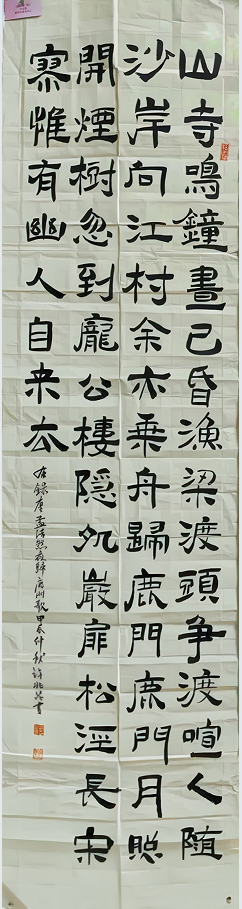 山寺鳴鐘晝已昏漁梁渡頭争渡喧人随
沙岸向江村余亦乗舟歸鹿門鹿門月照
開煙樹忽到龐公棲隐処巖扉松逕長寂
寥惟有幽人自来去
右録唐孟浩然夜歸鹿門歌甲辰仲秋許書